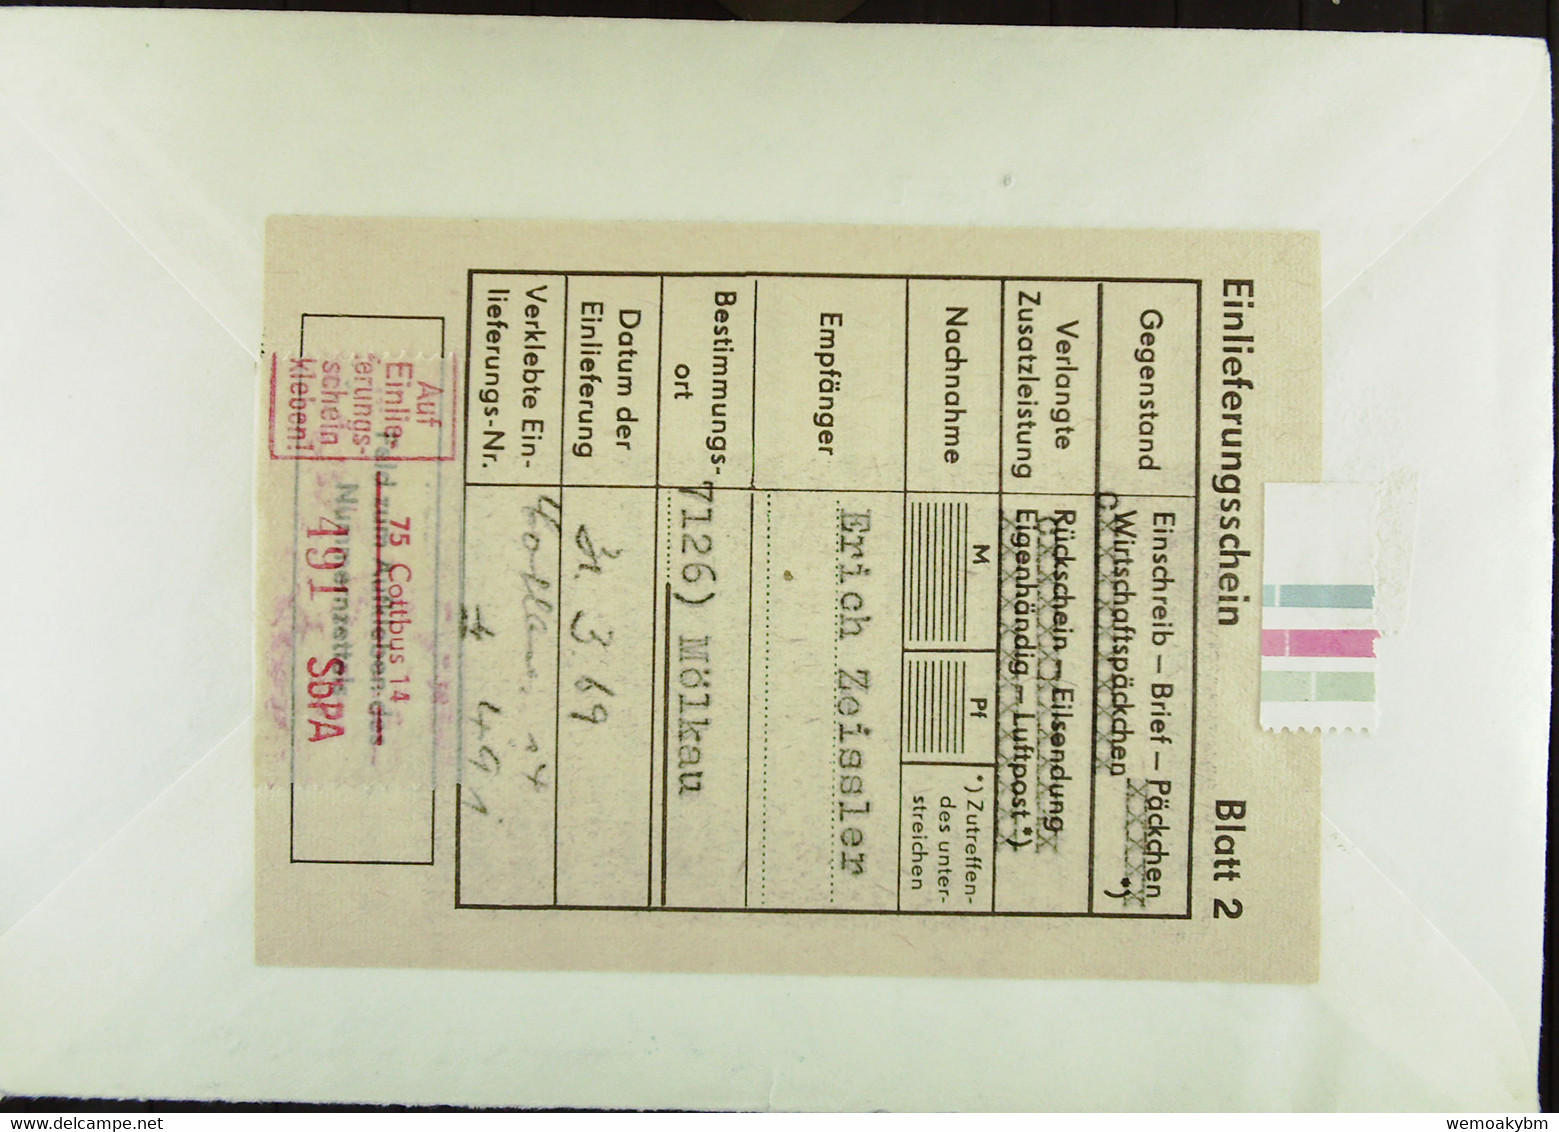 Einlieferungsschein Blatt 2
Gegenstand
Einschreib – Brief – Päckchen
Wirtschaftspäckchen *)
Verlangte
Zusatzleistung
Rückschein – Eilsendung
Eigenhändig – Luftpost *)
Nachnahme
M
Pf
*) Zutreffen-
des unter-
streichen
Empfänger
Erich Zeissler
Bestimmungs-
ort
7126) Mölkau
Datum der
Einlieferung
31. 3. 69
Verklebte Ein-
lieferungs-Nr.
491
Feld zum Aufkleben des
Nummernzettels
Auf
Einlie-
ferungs-
schein
kleben!
75 Cottbus 14
491 SbPA
wemoakybm